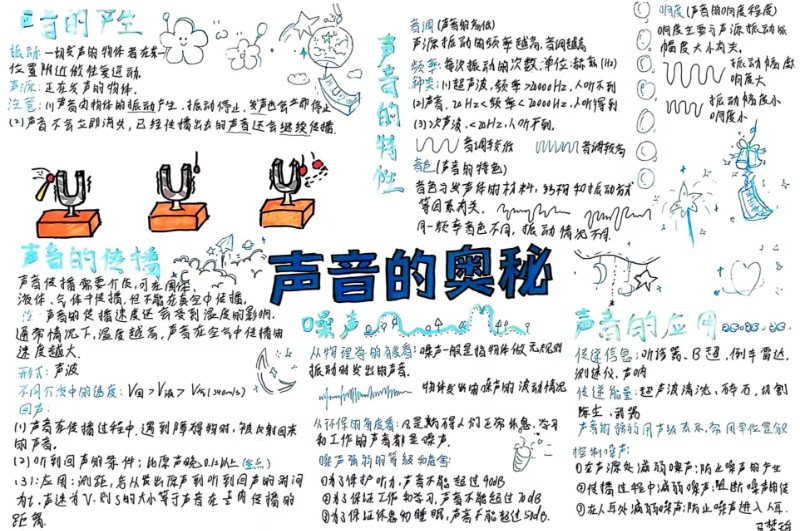 声音的产生
振动：一切发声的物体者在某一
位置附近做往复运动。
声源：正在发声的物体。
注意：(1)声音由物体的振动产生，振动停止，发声也会立即停止
(2)声音不会立即消失，已经传播出去的声音还会继续传播。
声音的特性
音调(声音的高低)
声源振动的频率越高，音调越高
频率：每次振动的次数，单位：赫兹(Hz)
种类：(1)超声波，频率>20000Hz，人听不到
(2)声音，20Hz<频率<20000Hz，人听得到
(3)次声波，<20Hz，人听不到。
音调较低
音调较高
音色(声音的特色)
音色与发声体的材料，结构和振动方式
等因素有关。
同一频率音色不同，振动情况不同。
响度(声音的响度程度)
响度主要与声源振动的
幅度大小有关。
振动幅度
响度大
振动幅度小
响度小
声音的奥秘
声音的传播
声音传播需要介质，可在固体
液体，气体中传播，但不能在真空中传播。
声音的传播速度还会受到温度的影响，
通常情况下，温度越高，声音在空气中传播的
速度越大。
形式：声波
不同介质中的速度：V固>V液>V气(340m/s)
回声：
(1)声音在传播过程中，遇到障碍物时，被反射回来
的声音。
(2)听到回声的条件：比原声晚0.1s以上
(3)：应用：测距，若从发出原声到听到回声的时间
为t，声速为V，则
距离。
噪声
从物理学的角度看：噪声一般是指物体做无规则
振动时发出的声音。
物体发出的噪声的波动情况
从环保的角度看：凡是妨碍人们正常休息、学习
和工作的声音都是噪声。
噪声强弱的等级和危害
①为了保护听力，声音不能超过90dB
②为了保证工作和学习，声音不能超过70dB
③为了保证休息和睡眠，声音不能超过50dB
声音的应用
传递信息：听诊器、B超、倒车雷达，
测速仪，声呐
传递能量：超声波清洗、碎石，切割
除尘，武器
声音的强弱用声级表示，常用单位是
控制噪声：
①在声源处减弱噪声：防止噪声的产生
②传播过程中减弱噪声：阻断噪声的传
③在人耳处减弱噪声：防止噪声进入人耳。